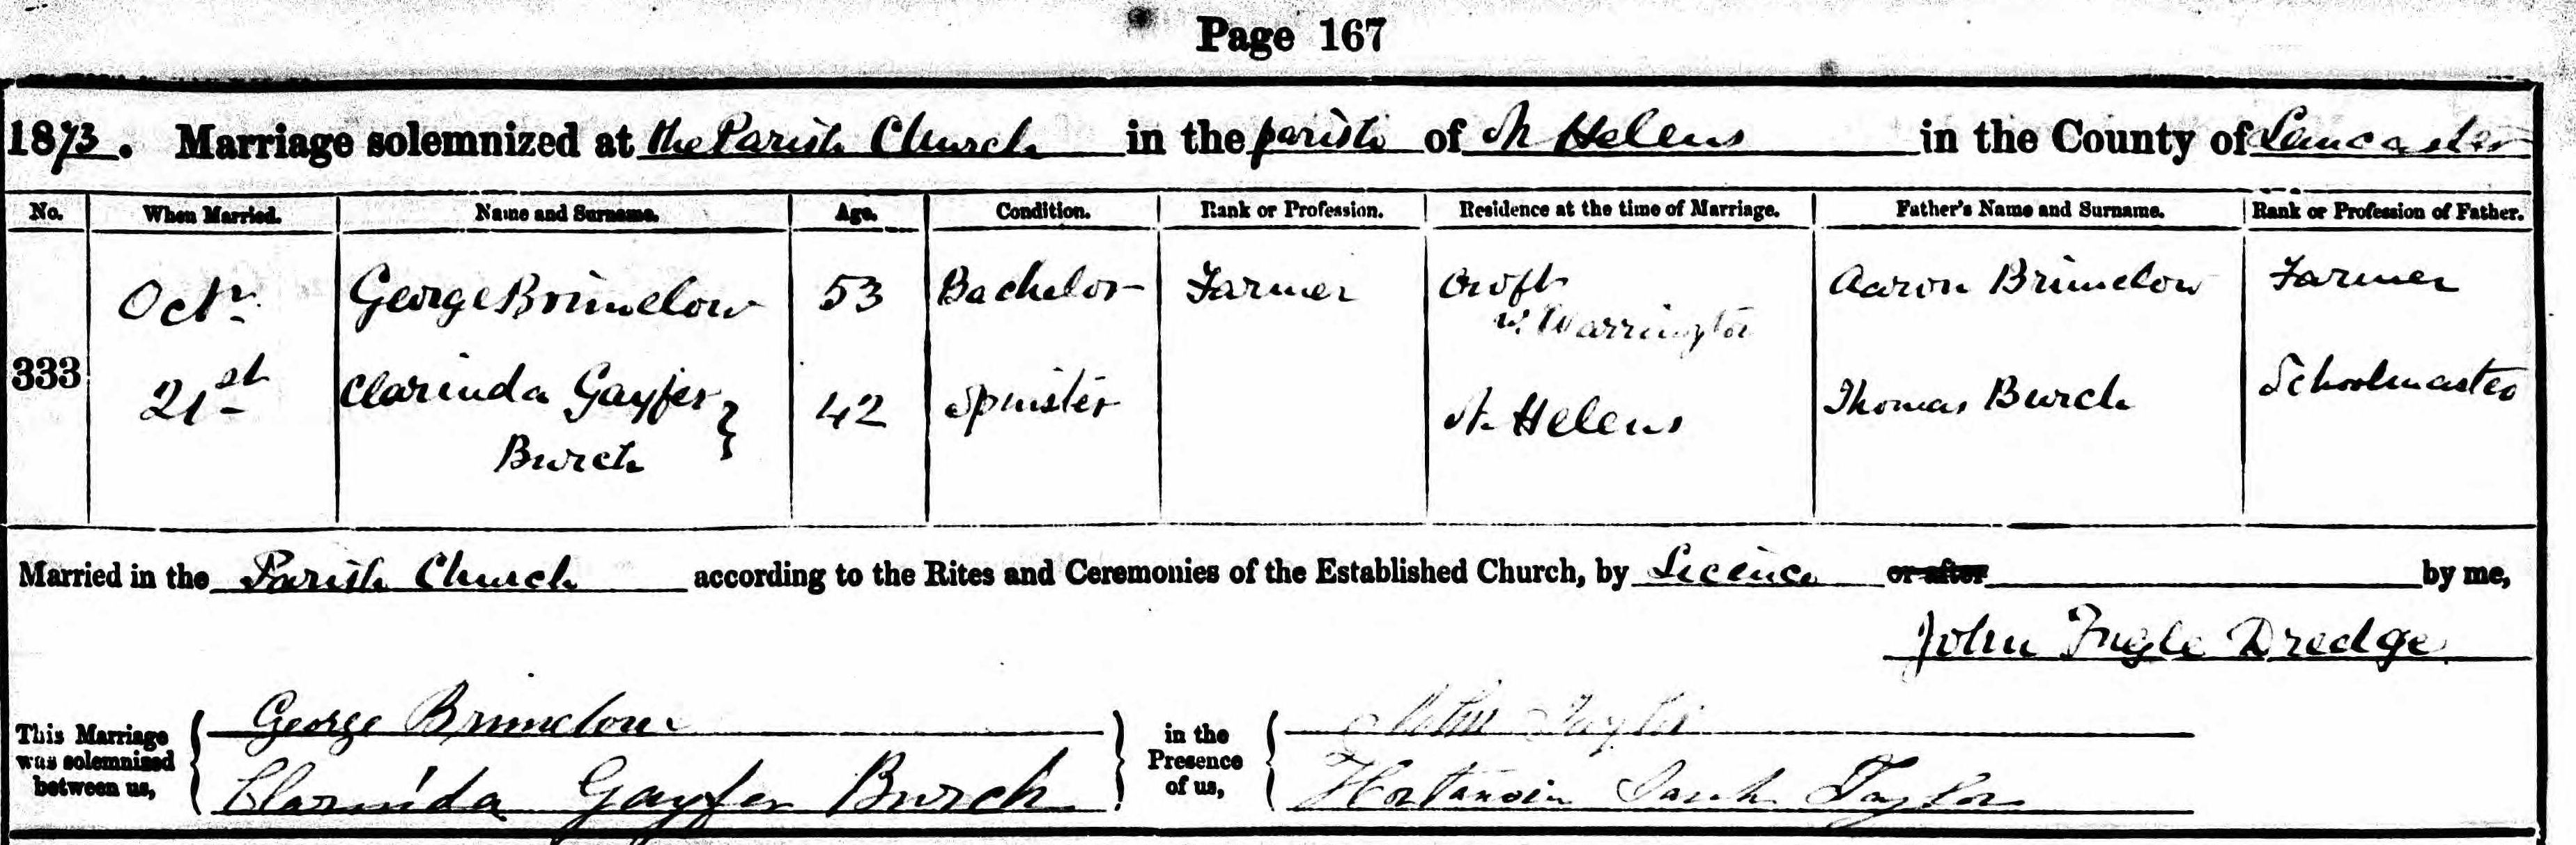 Page 167
1873. Marriage solemnized at the Parish Church in the parish of St Helens in the County of Lancaster
No. When Married. Name and Surname. Age. Condition. Rank or Profession. Residence at the time of Marriage. Father's Name and Surname. Rank or Profession of Father.
333 Octr. 21st
George Brimelow 53 Bachelor Farmer Croft Warrington Aaron Brimelow Farmer
Clarinda Gayfer Burch } 42 Spinster St. Helens Thomas Burch Schoolmaster
Married in the Parish Church according to the Rites and Ceremonies of the Established Church, by Licence or after by me,
John Ingle Dredge
This Marriage was solemnized between us, { George Brimelow } in the Presence of us, { Taylor
Clarinda Gayfer Burch Sarah Taylor